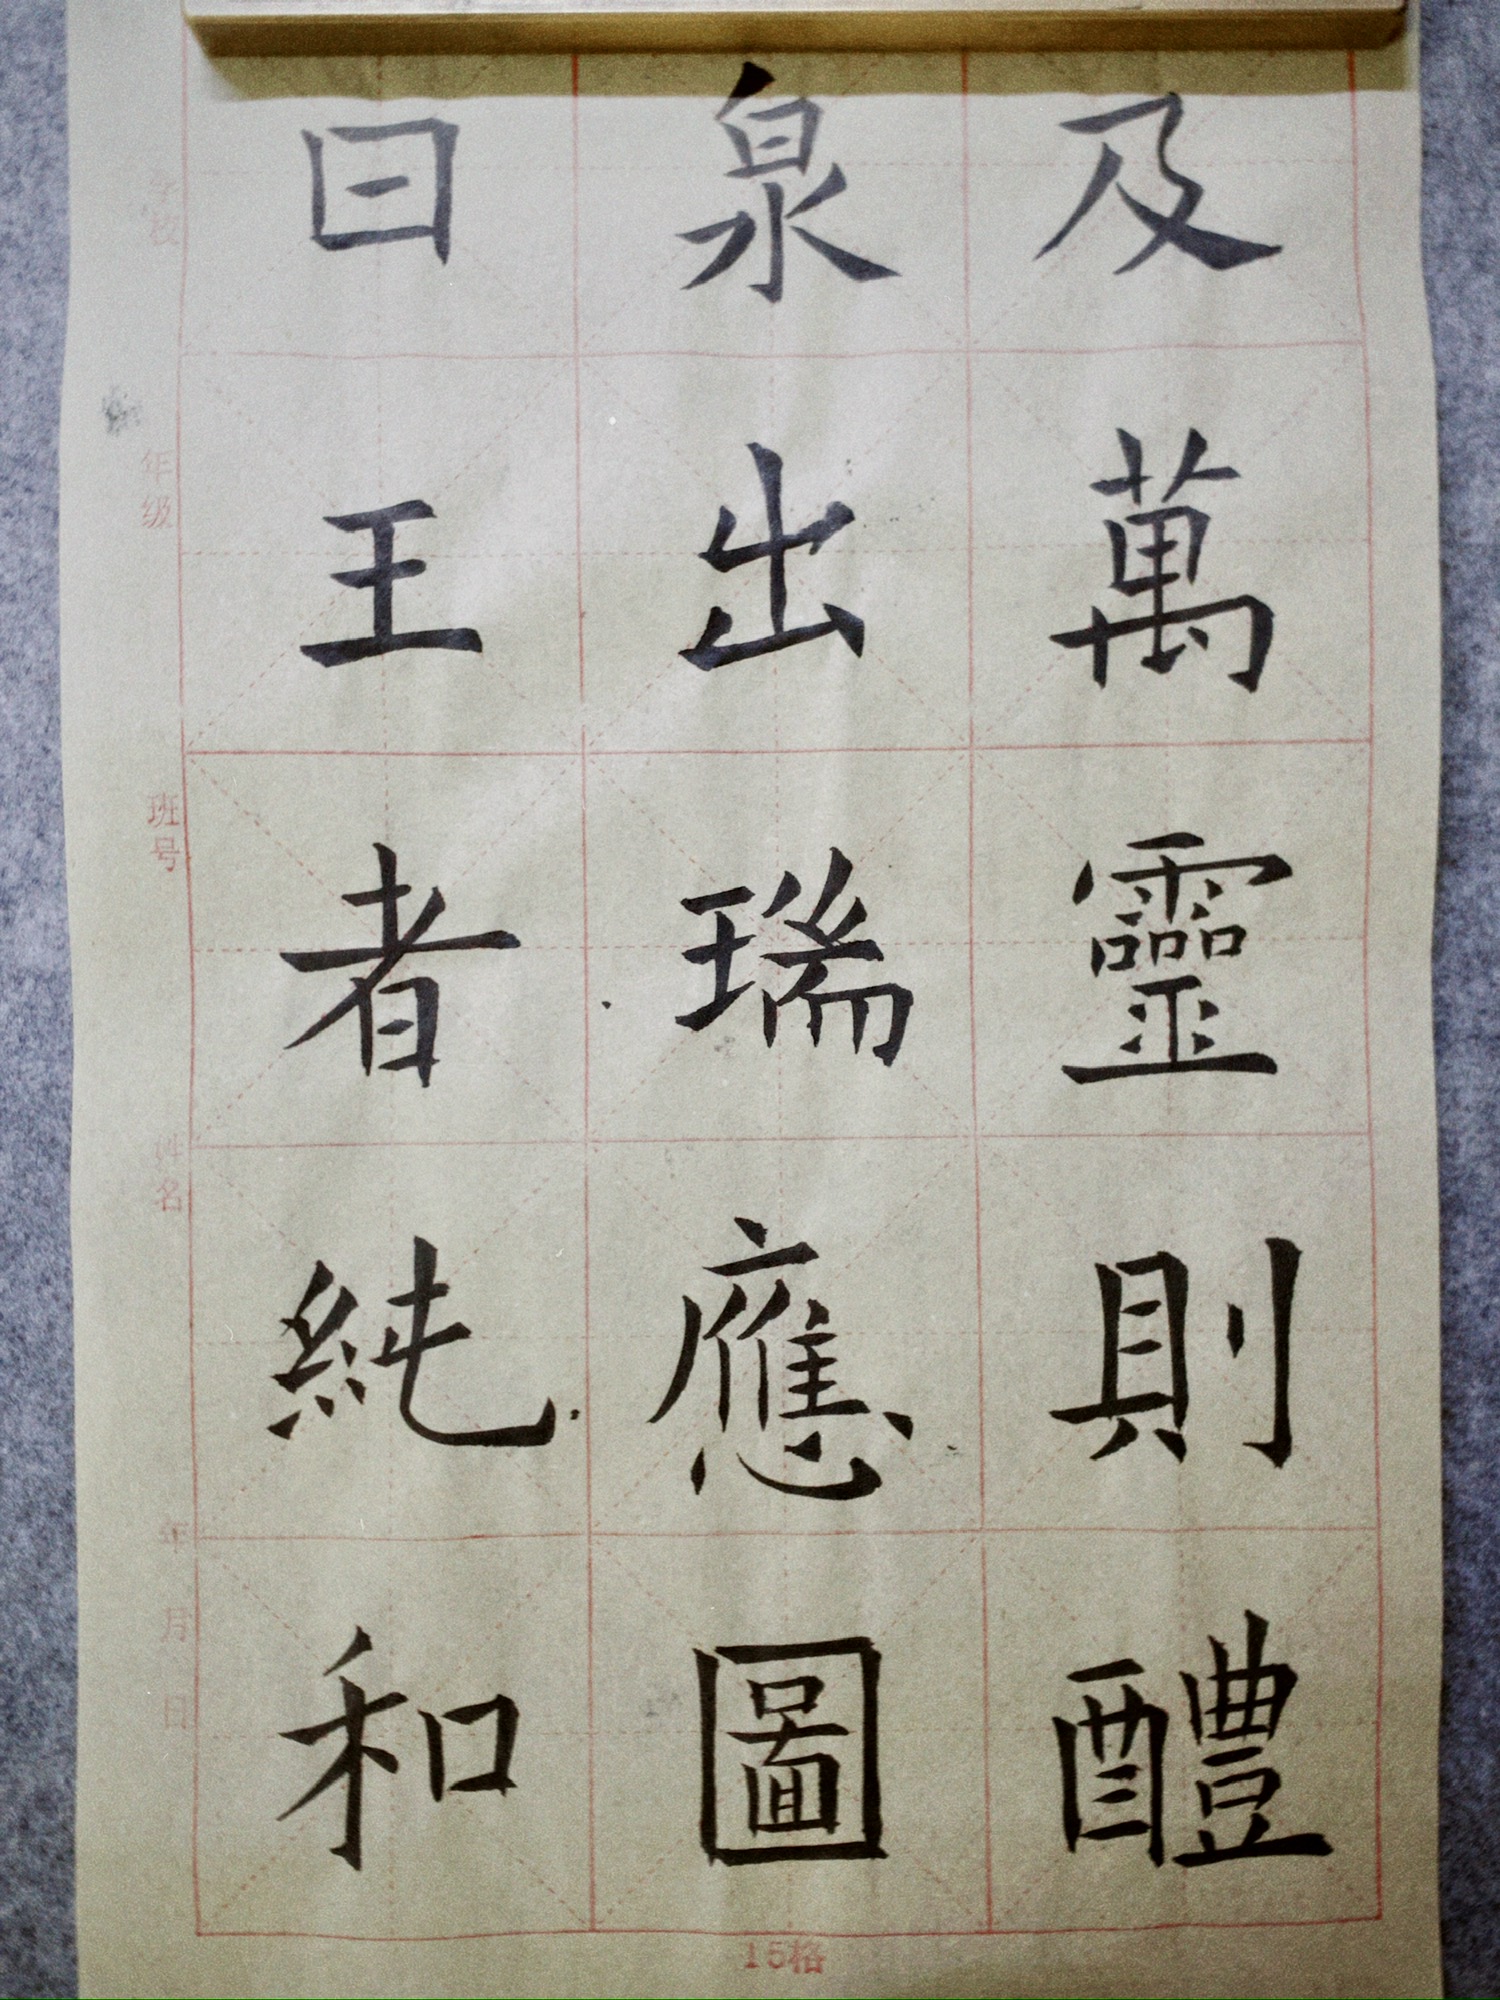 及萬靈則醴
泉出瑞應圖
曰王者純和
学校
年级
班号
姓名
年月日
15格